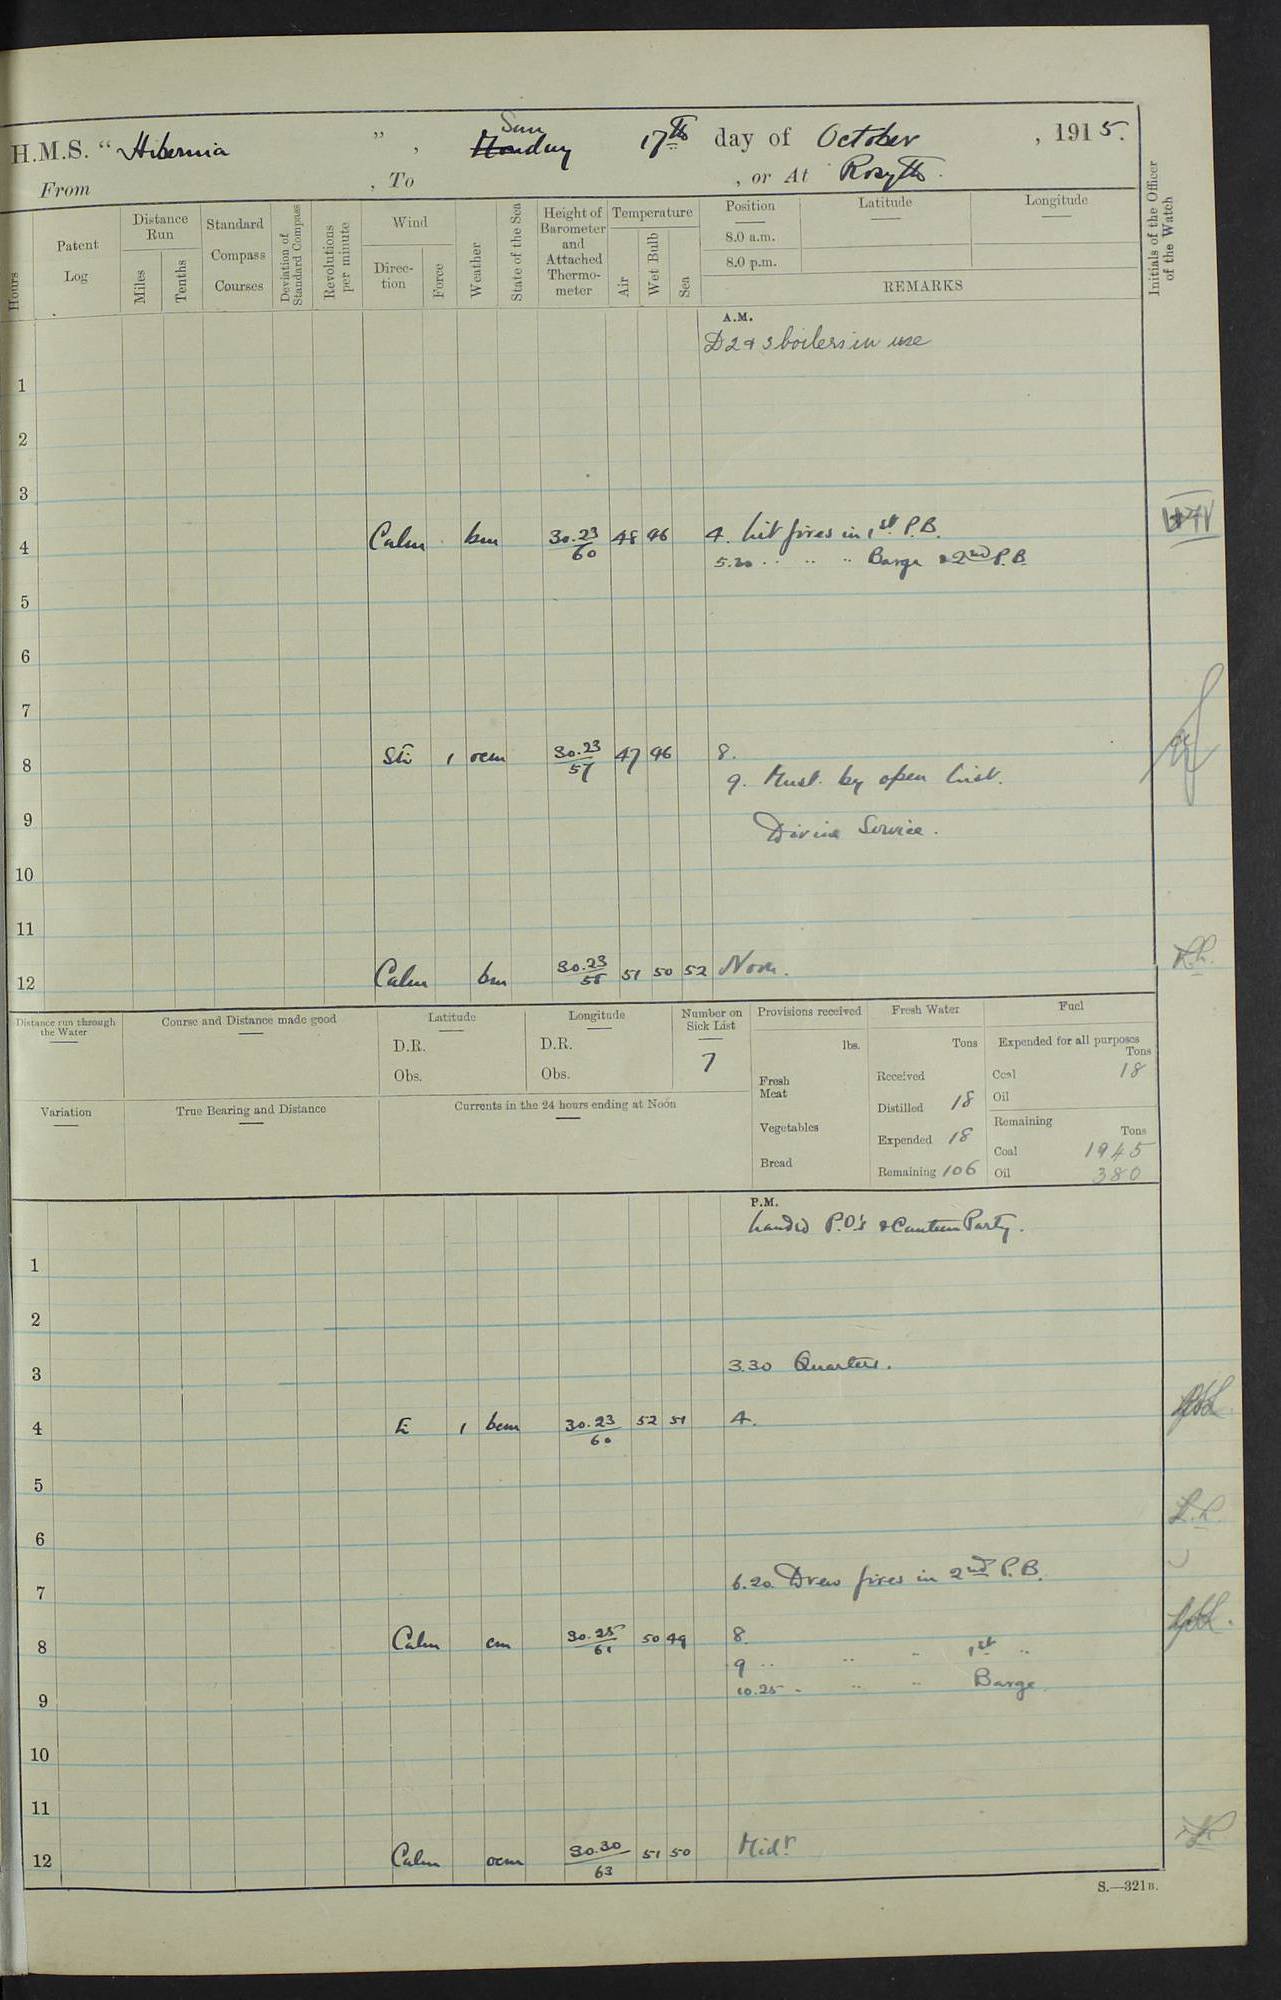 H.M.S. “ Hibernia ” , Monday Sun 17th day of October , 1915.
From , To , or At Rosyth.
Hours
Patent Log
Distance Run
Miles
Tenths
Standard Compass Courses
Deviation of Standard Compass
Revolutions per minute
Wind
Direc-tion
Force
Weather
State of the Sea
Height of Barometer and Attached Thermo-meter
Temperature
Air
Wet Bulb
Sea
Position
8.0 a.m.
8.0 p.m.
Latitude
Longitude
REMARKS
Initials of the Officer of the Watch
A.M.
D2 & 3 boilers in use
1
2
3
4 Calm bm 30.23/60 48 46 4. Lit fires in 1st P.B.
5.20 .. .. .. Barge & 2nd P.B.
5
6
7
8 1 ocm 30.23/57 47 46 8.
9. Must. by open list.
9
Divine Service.
10
11
12 Calm bm 30.23/58 51 50 52 Noon.
Distance run through the Water
Course and Distance made good
Latitude
D.R.
Obs.
Longitude
D.R.
Obs.
Number on Sick List
7
Provisions received
lbs.
Fresh Meat
Vegetables
Bread
Fresh Water
Tons
Received
Distilled 18
Expended 18
Remaining 106
Fuel
Expended for all purposes
Tons
Coal 18
Oil
Remaining
Tons
Coal 1945
Oil 380
Variation
True Bearing and Distance
Currents in the 24 hours ending at Noon
P.M.
Landed P.O's & Canteen Party.
1
2
3
3.30 Quarters.
4 E 1 bcm 30.23/60 52 51 4.
5
6
6.20 Drew fires in 2nd P.B.
7
8 Calm cm 30.25/61 50 49 8.
9 .. .. .. 1st ..
10.25 .. .. .. Barge
9
10
11
12 Calm ocm 30.30/63 51 50 Midt
S.—321B.